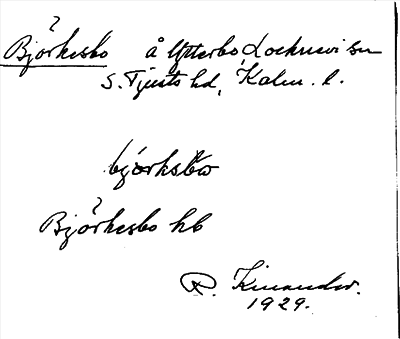 Björkesbo å Ytterbo Locknevi sn
S. Tjusts hd, Kalm. l.
björksbω
Björkesbo hb
R. Kinander.
1929.